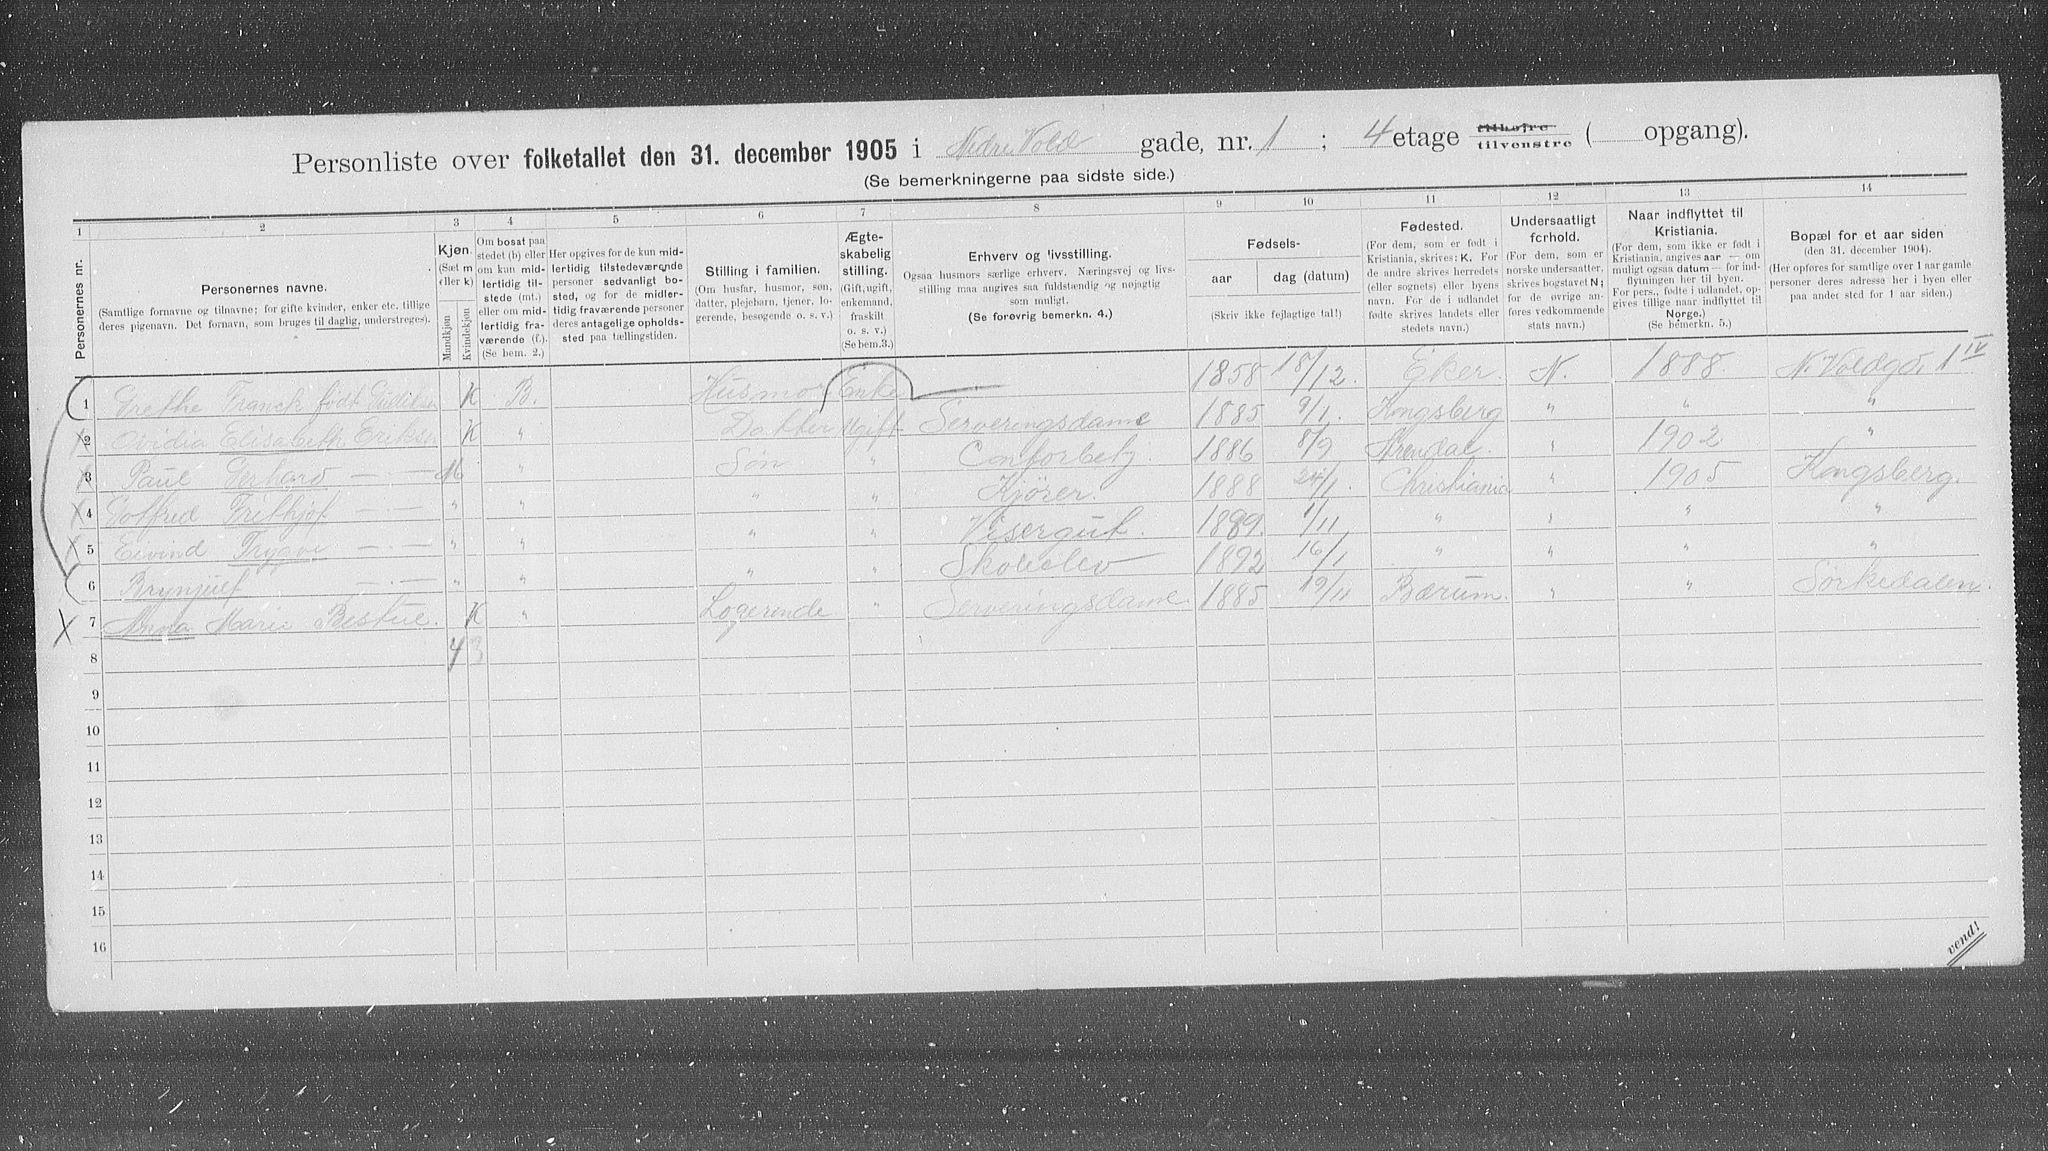 Personliste over folketallet den 31. december 1905 i Nedre Vold gade, nr. 1 ; 4 etage tilhøjre tilvenstre ( opgang).
(Se bemerkningerne paa sidste side.)
1 2 3 4 5 6 7 8 9 10 11 12 13 14
Personernes nr.
Personernes navne.
(Samtlige fornavne og tilnavne; for gifte kvinder, enker etc. tillige
deres pigenavn. Det fornavn, som bruges til daglig, understreges).
Kjøn.
(Sæt m
eller k)
Mandkjøn
Kvindekjøn
Om bosat paa
stedet (b) eller
om kun mid-
lertidig til-
stede (mt.)
eller om mid-
lertidig fra-
værende (f.).
(Se bem. 2.)
Her opgives for de kun mid-
lertidig tilstedeværende
personer sedvanligt bo-
sted, og for de midler-
tidig fraværende personer
deres antagelige opholds-
sted paa tællingstiden.
Stilling i familien.
(Om husfar, husmor, søn,
datter, plejebarn, tjener, lo-
gerende, besøgende o. s. v.)
Ægte-
skabelig
stilling.
(Gift, ugift,
enkemand,
fraskilt
o. s. v.)
(Se bem.3.)
Erhverv og livsstilling.
Ogsaa husmors særlige erhverv. Næringsvej og livs-
stilling maa angives saa fuldstændig og nøjagtig
som muligt.
(Se forøvrig bemerkn. 4.)
Fødsels-
aar dag (datum)
(Skriv ikke fejlagtige tal!)
Fødested.
(For dem, som er født i
Kristiania, skrives: K. For
de andre skrives herredets
(eller sognets) eller byens
navn. For de i udlandet
fødte skrives landets eller
stedets navn.)
Undersaatligt
forhold.
(For dem, som er
norske undersaatter,
skrives bogstavet N;
for de øvrige an-
føres vedkommende
stats navn.)
Naar indflyttet til
Kristiania.
(For dem, som ikke er født i
Kristiania, angives aar — om
muligt ogsaa datum — for ind-
flytningen her til byen.
For pers., fødte i udlandet, op-
gives tillige naar indflyttet til
Norge.)
(Se bemerkn. 5.)
Bopæl for et aar siden
(den 31. december 1904).
(Her opføres for samtlige over 1 aar gamle
personer deres adresse her i byen eller
paa andet sted for 1 aar siden.)
1 Grethe Franck født K B. Husmor Enke — 1858 18/12. Eker. N. 1888. N. Voldgd. 1 IV
2 Ovidia Elisabeth Eriksen K " Datter Ugift Serveringsdame 1885 9/1. Kongsberg " " "
3 Paul Gerhard — — M " Søn " Contorbetj. 1886 8/9 Arendal. " 1902 "
4 Gotfred Frithjof — — " " " " Kjører. 1888 24/1. Christiania " 1905 Kongsberg.
5 Eivind Trygve — — " " " " Visergut. 1889. 1/11 " " " "
6 Brynjulf — — " " " Skoleelev 1892 16/1 " " " "
7 Anna Marie Bestue. K " Logerende " Serveringsdame 1885 19/11 Bærum. " " Sørkedalen.
8 4 3
9
10
11
12
13
14
15
16
vend!